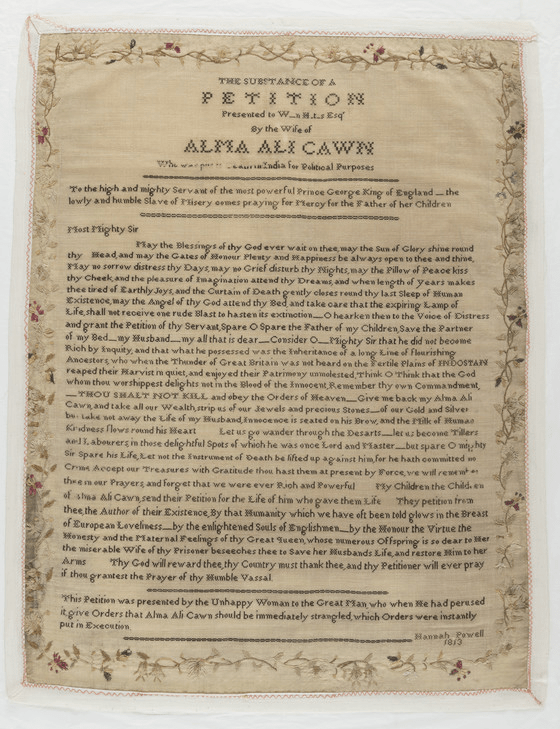 THE SUBSTANCE OF A
PETITION
Presented to W_n H_ts Esqr
By the Wife of
ALMA ALI CAWN
Who was put to in India for Political Purposes
To the high and mighty Servant of the most powerful Prince George King of England _ the
lowly and humble Slave of Misery comes praying for Mercy for the Father of her Children
Most Mighty Sir
May the Blessings of thy God ever wait on thee, may the Sun of Glory shine round
thy Head, and may the Gates of Honour Plenty and Happiness be always open to thee and thine,
May no sorrow distress thy Days, may no Grief disturb thy Nights, may the Pillow of Peace kiss
thy Cheek, and the pleasure of Imagination attend thy Dreams, and when length of Years makes
thee tired of Earthly Joys, and the Curtain of Death gently closes round thy last Sleep of Human
Existence, may the Angel of thy God attend thy Bed, and take care that the expiring Lamp of
Life, shall not receive one rude Blast to hasten its extinction _ O hearken then to the Voice of Distress
and grant the Petition of thy Servant, Spare O Spare the Father of my Children, Save the Partner
of my Bed _ my Husband _ my all that is dear _ Consider O _ Mighty Sir that he did not become
Rich by Inquity, and that what he possessed was the Inheritance of a long Line of flourishing
Ancestors, who when the Thunder of Great Britain was not heard on the Fertile Plains of INDOSTAN
reaped their Harvist in quiet, and enjoyed their Patrimony unmolested, Think O Think that the God
whom thou worshippest delights not in the Blood of the Innocent, Remember thy own Commandment,
_ THOU SHALT NOT KILL and obey the Orders of Heaven _ Give me back my Alma Ali
Cawn, and take all our Wealth, strip us of our Jewels and precious Stones _ of our Gold and Silver
but take not away the Life of my Husband, Innocence is seated on his Brow, and the Milk of Human
Kindness flows round his Heart Let us go wander through the Desarts _ let us become Tillers
and Labourers in those delightful Spots of which he was once Lord and Master _ but spare O mighty
Sir Spare his Life, Let not the Instrument of Death be lifted up against him, for he hath committed no
Crime Accept our Treasures with Gratitude thou hast them at present by Force, we will remember
thee in our Prayers, and forget that we were ever Rich and Powerful My Children the Children
of Alma Ali Cawn, send their Petition for the Life of him who gave them Life They petition from
thee, the Author of their Existence, By that Humanity which we have oft been told glows in the Breast
of European Loveliness _ by the enlightened Souls of Englishmen _ by the Honour the Virtue the
Honesty and the Maternal Feelings of thy Great Queen, whose numerous Offspring is so dear to Her
the miserable Wife of thy Prisoner beseeches thee to Save her Husbands Life, and restore Him to her
Arms Thy God will reward thee, thy Country must thank thee, and thy Petitioner will ever pray
if thou grantest the Prayer of thy Humble Vassal
This Petition was presented by the Unhappy Woman to the Great Man, who when He had perused
it, give Orders that Alma Ali Cawn should be immediately strangled, which Orders were instantly
put in Execution
Hannah Powell
1813